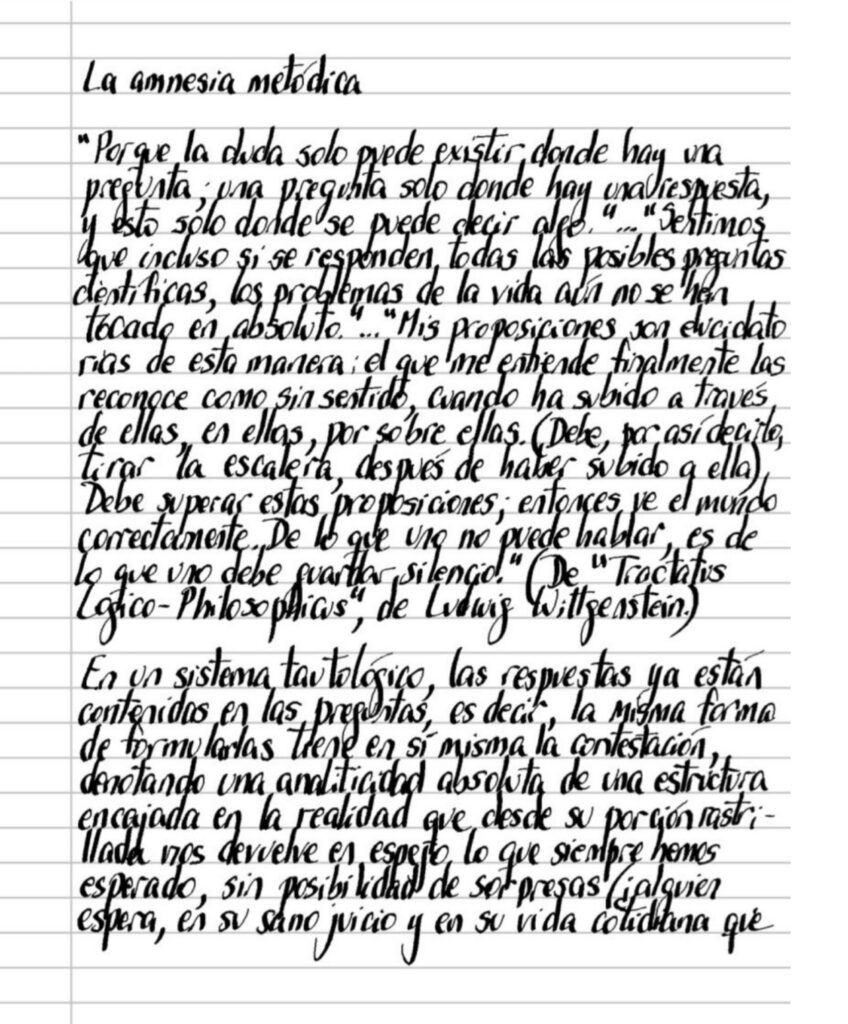 La amnesia metódica
"Porque la duda solo puede existir donde hay una
pregunta; una pregunta solo donde hay una respuesta,
y esto solo donde se puede decir algo."..."Sentimos
que incluso si se responden todas las posibles preguntas
científicas, los problemas de la vida aún no se han
tocado en absoluto."..."Mis proposiciones son elucidato
rias de esta manera: el que me entiende finalmente las
reconoce como sin sentido, cuando ha subido a través
de ellas, en ellas, por sobre ellas. (Debe, por así decirlo,
tirar la escalera, después de haber subido a ella).
Debe superar estas proposiciones; entonces ve el mundo
correctamente. De lo que uno no puede hablar, es de
lo que uno debe guardar silencio." (De "Tractatus
Lgótico-Philosophicus", de Ludwig Wittgenstein.)
En un sistema tautológico, las respuestas ya están
contenidas en las preguntas, es decir, la misma forma
de formularlas tiene en sí misma la contestación,
denotando una analiticidad absoluta de una estructura
encajada en la realidad que desde su porción rastri-
llada nos devuelve en espejo lo que siempre hemos
esperado, sin posibilidad de sorpresas (¿alguien
espera, en su sano juicio y en su vida cotidiana que